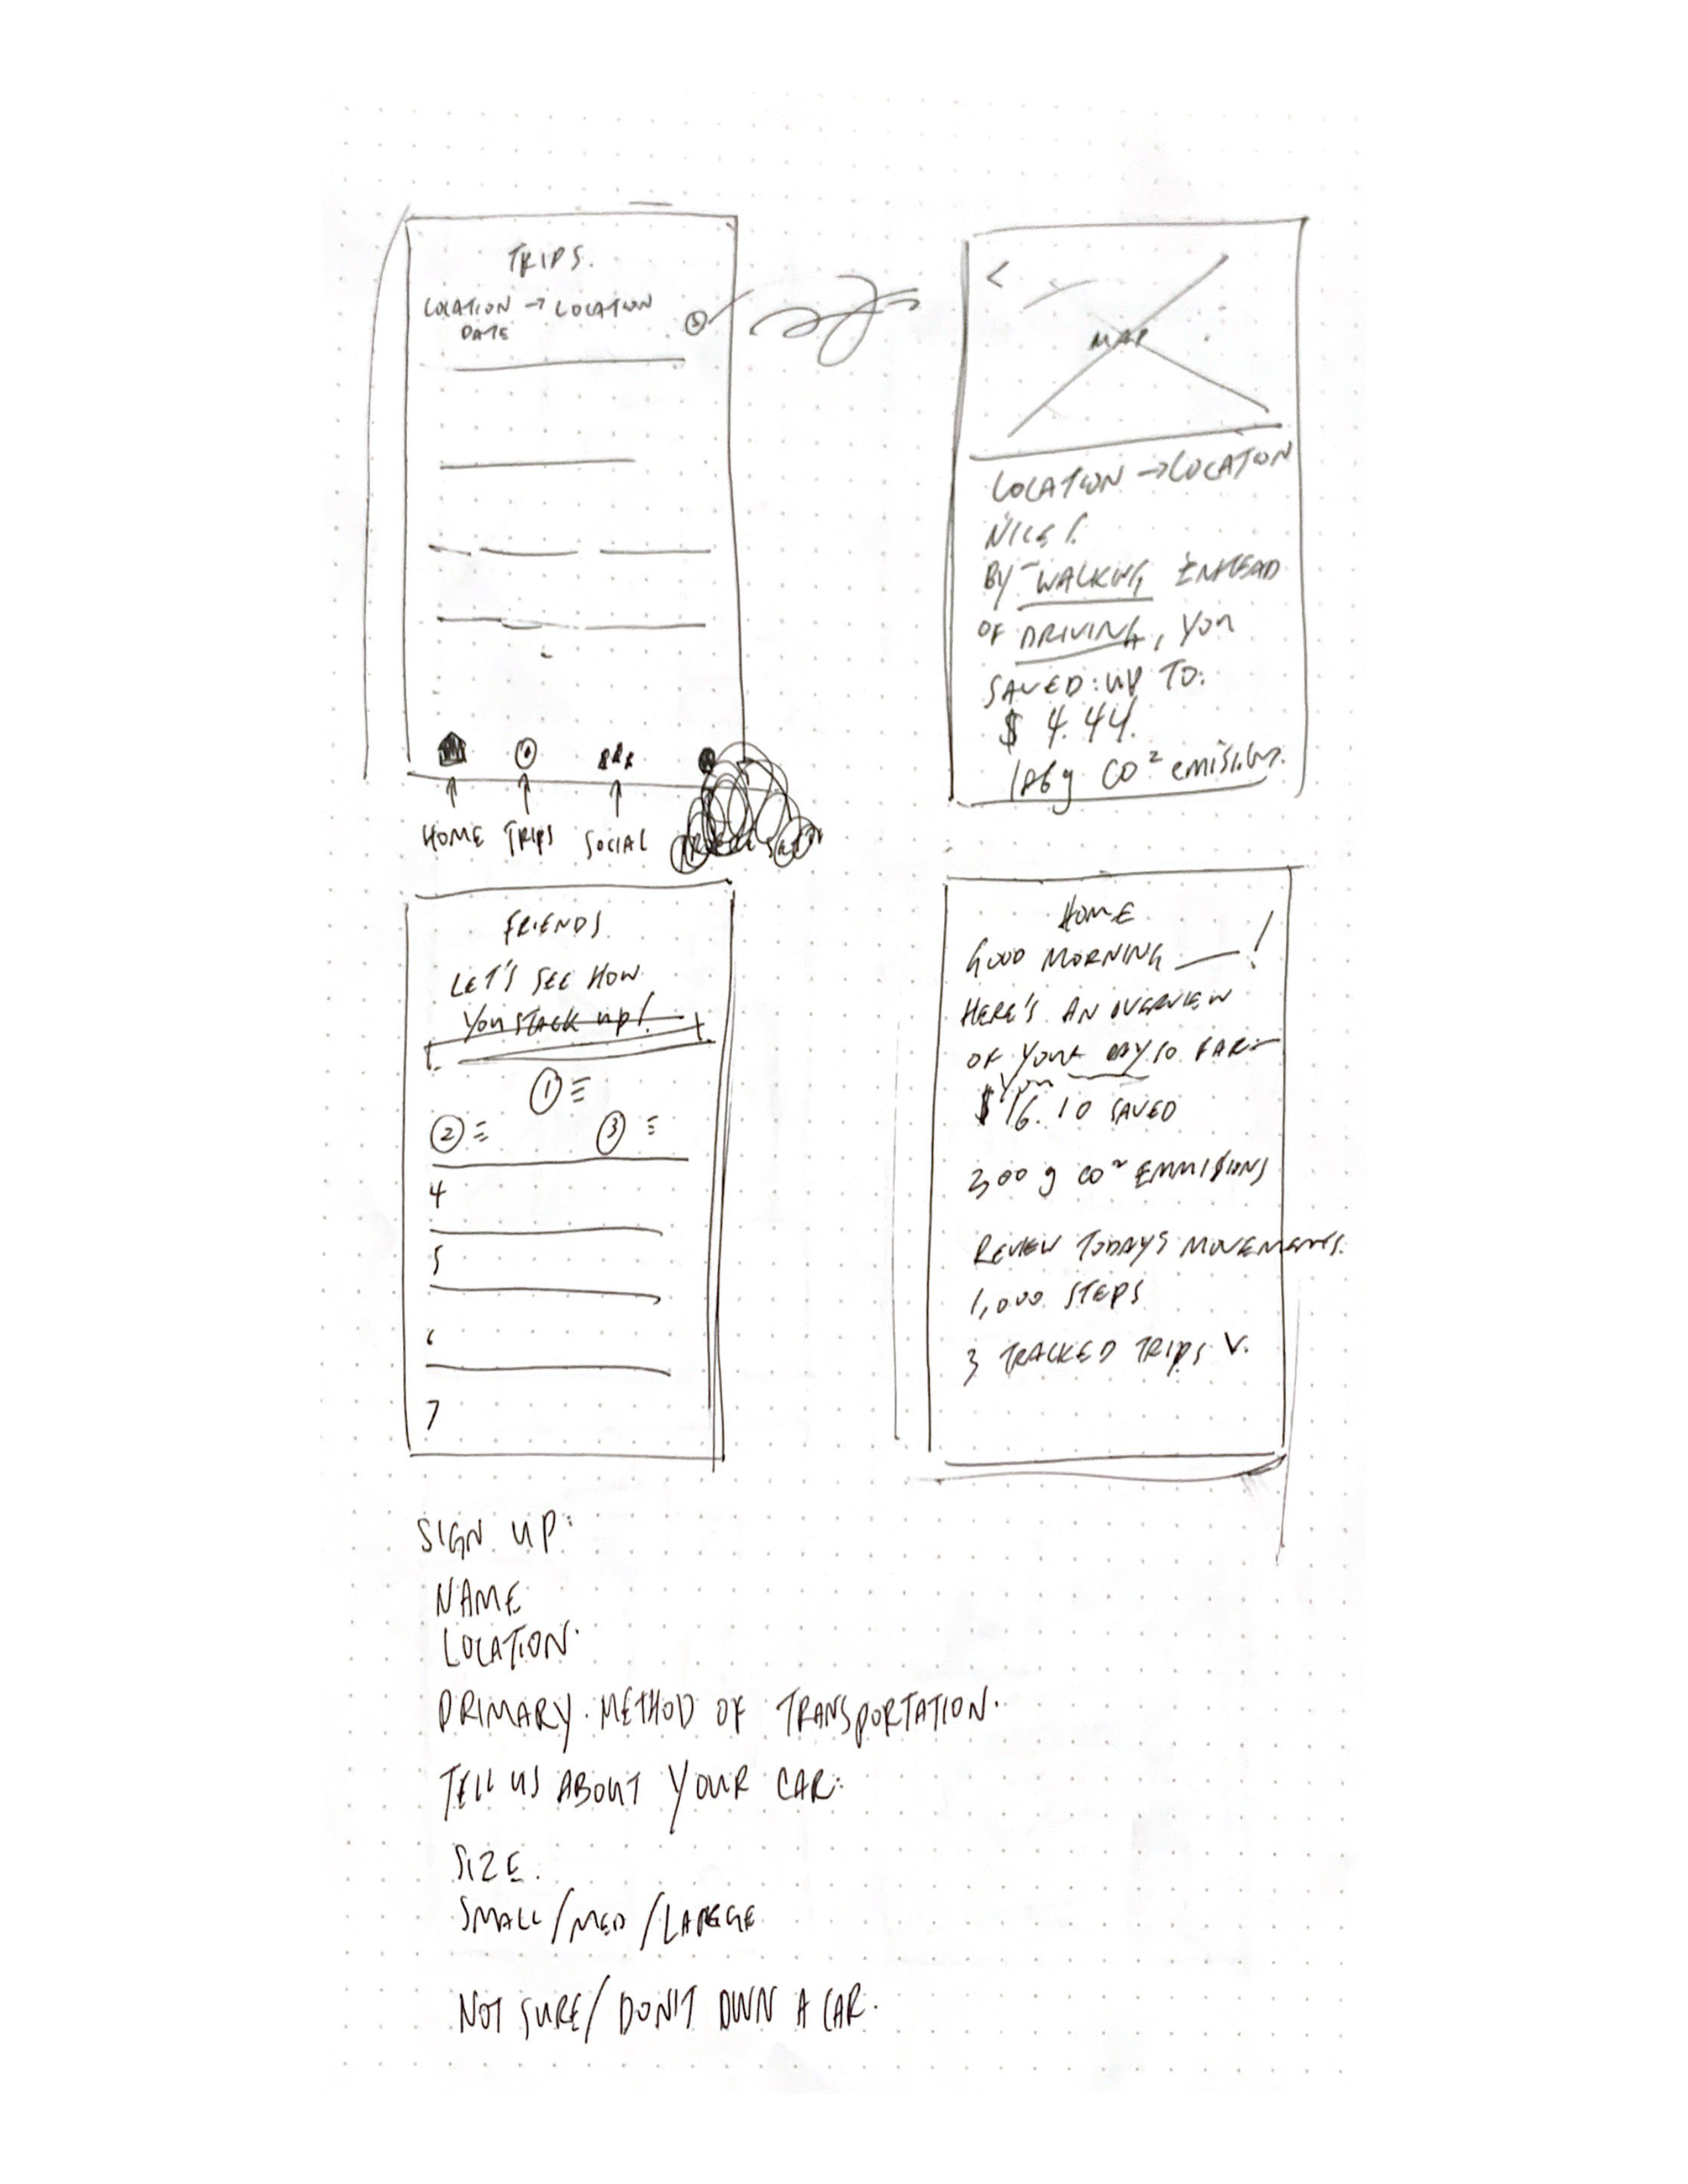 TRIPS.
LOCATION → LOCATION
DATE
HOME TRIPS SOCIAL
<
MAP
LOCATION → LOCATION
NICE!
BY WALKING INSTEAD
OF DRIVING, YOU
SAVED: UP TO:
$ 4.44.
g CO² emissions.
FRIENDS.
LET'S SEE HOW
YOU STACK UP!
1
2 3
4
5
6
7
HOME
GOOD MORNING ___!
HERE'S AN OVERVIEW
OF YOUR DAY SO FAR:
You
$16.10 SAVED
300 g CO² EMMISIONS
REVIEW TODAYS MOVEMENTS.
1,000 STEPS
3 TRACKED TRIPS V.
SIGN UP:
NAME
LOCATION.
PRIMARY METHOD OF TRANSPORTATION.
TELL US ABOUT YOUR CAR:
SIZE.
SMALL/MED/LARGE
NOT SURE/DON'T OWN A CAR.